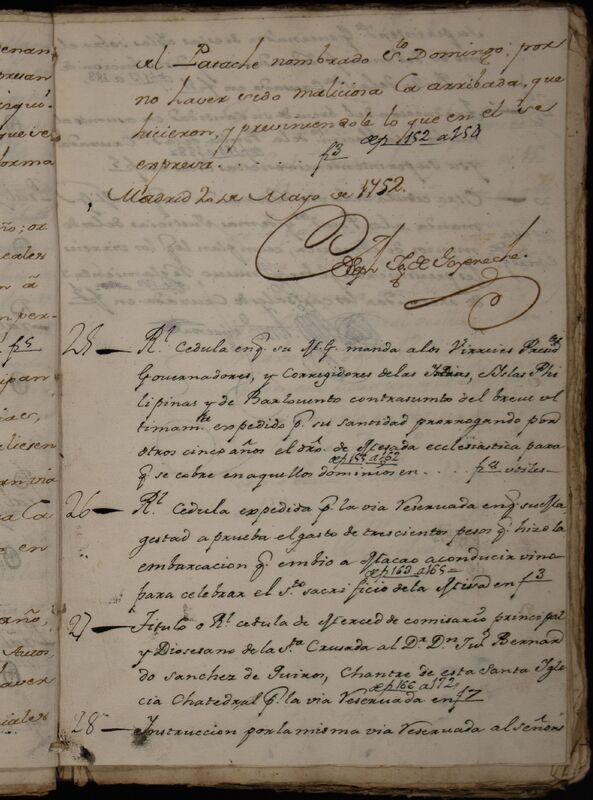 al Patache nombrado Sto Domingo; por
no haver sido maliciosa la arribada, que
hicieron, y previniendole lo que en el se
expresa. f3
exp 152 a 154
Madrid 20 de Mayo de 1752.
25 Rl Cedula en q. su M. manda alos Virreies Presid.es
Governadores, y Corregidores de las Indias, Islas Phi
lipinas y de Barlovento con trasumto del breve ul
timam.te expedido p. su Santidad prorrogando por
otros cinco años el dro. de Mesada ecclesiastica para
exp 155 a 162
q. se cobre en aquellos dominios en f 8 utiles
26 Rl Cedula expedida p. la via reservada en q. su Ma
gestad aprueba el gasto de trescientos pesos q. hizo la
embarcacion q. embio a Macao a conducir vino
exp 163 a 165
para celebrar el Sto sacrificio de la Missa en f 3
27 Titulo o Rl cedula de Merced de comisario principal
y Diosesano de la Sta Crusada al Dr. Dn. Jul Bernar
do Sanchez de Quiros, Chantre de esta Santa Igle
exp 166 a 172
cia Chatedral p. la via reservada en f 7
28 Instruccion por la misma via reservada al señor
enan
presan
que se
forma
ño; ot
eales
n a
n per-
f 5
upan
eliesen
an via
a Ca
en
año,
haver
iales